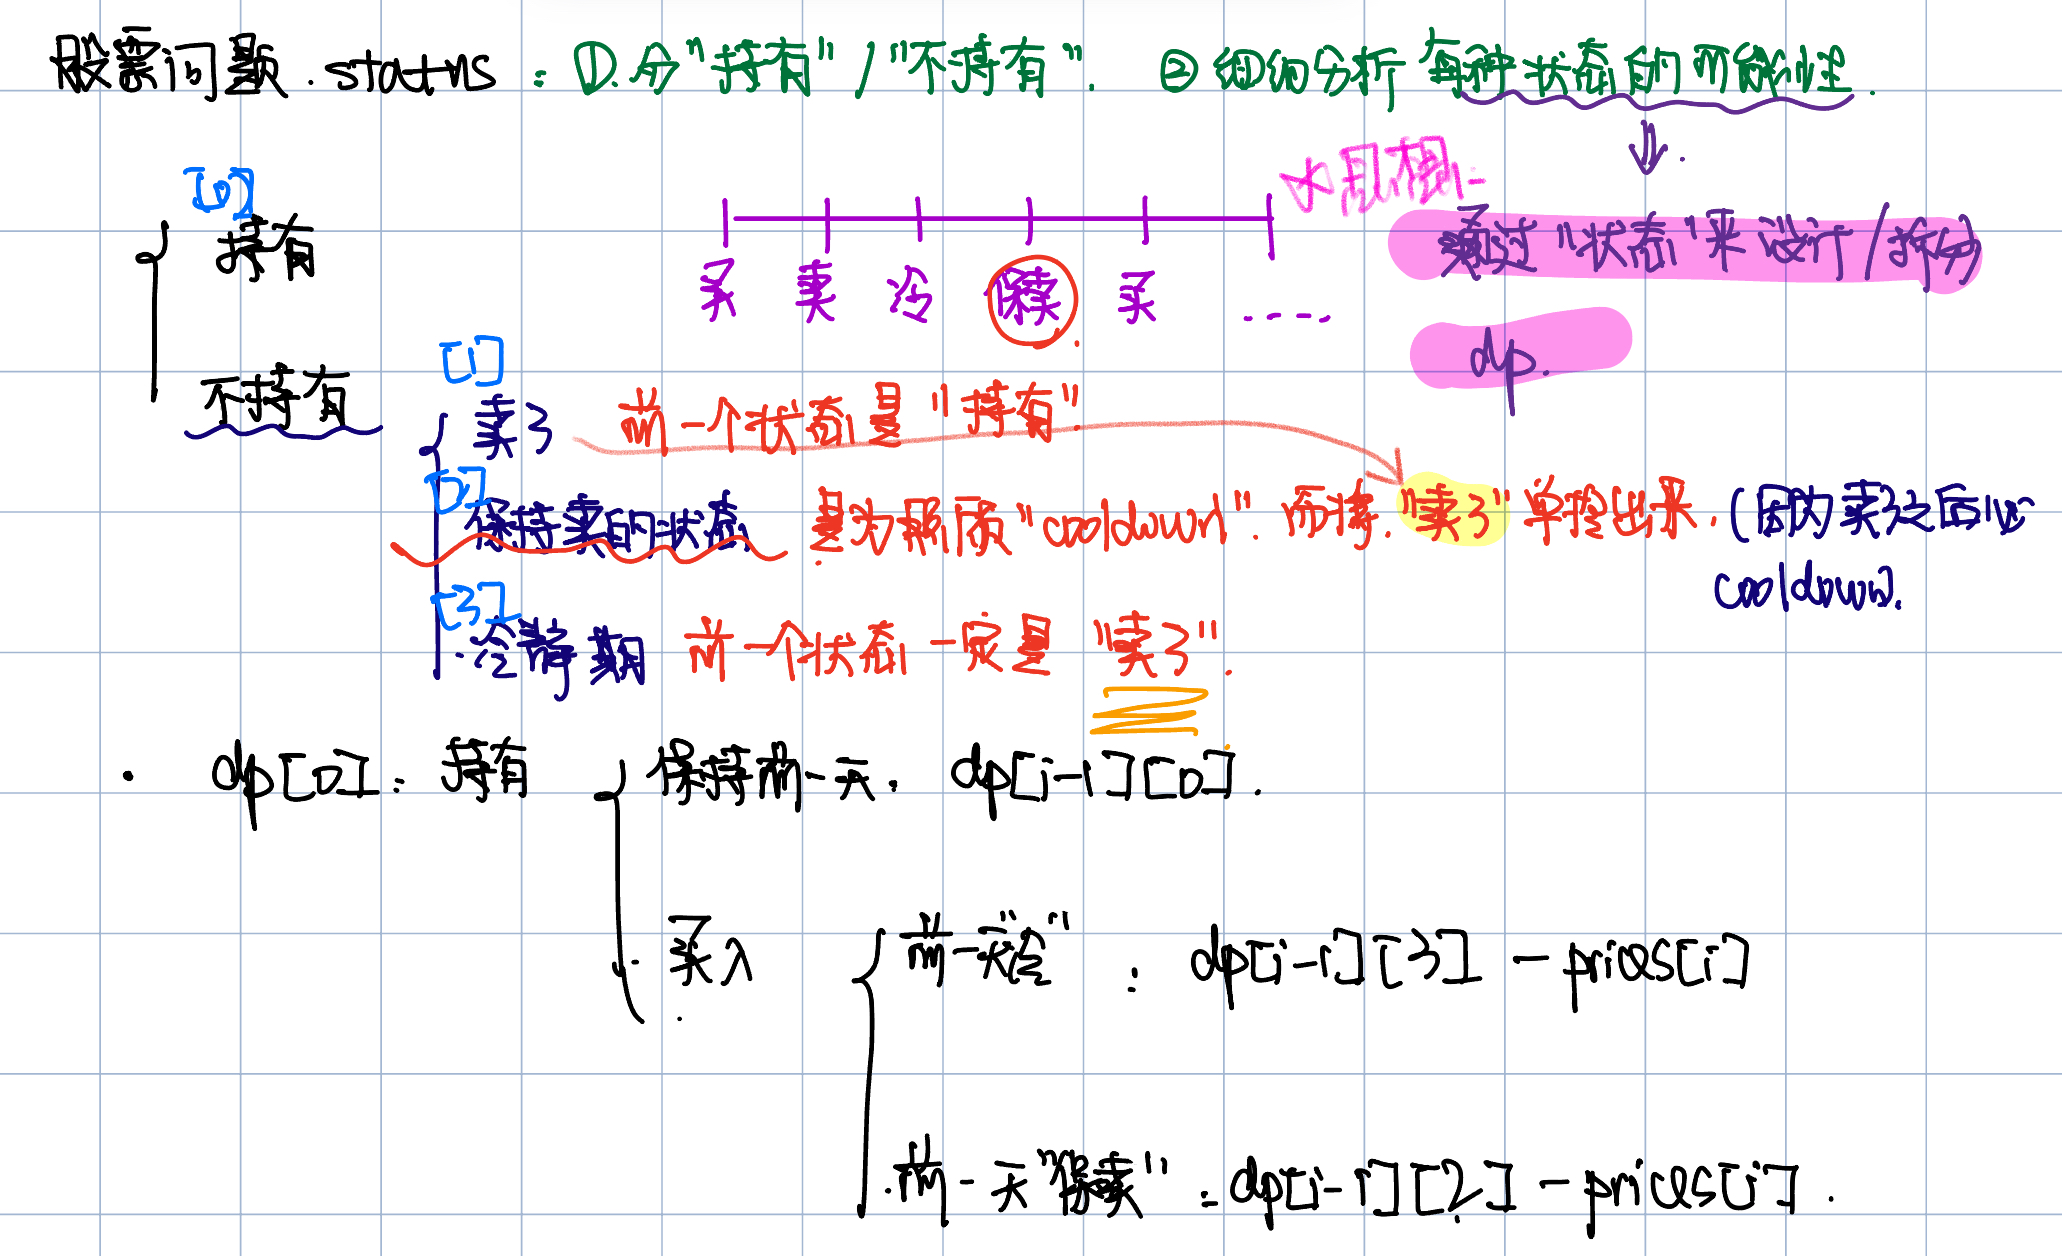 股票问题. status : ①.分"持有" / "不持有". ②细细分析 每种状态的可能性.
[0]
持有
☆思想:
通过"状态"来设计/拆分
dp.
买 卖 冷 保卖 买 ....
不持有
[1]
卖了 前一个状态是"持有"
[2]
保持卖的状态 是为照顾"cooldown". 而将."卖了"单拎出来. (因为卖了之后必
cooldown).
[3]
冷静期 前一个状态一定是 "卖了".
· dp[0]: 持有
保持前一天. dp[i-1][0].
买入
前一天"冷" : dp[i-1][3] - prices[i]
前一天"保卖" : dp[i-1][2] - prices[i].